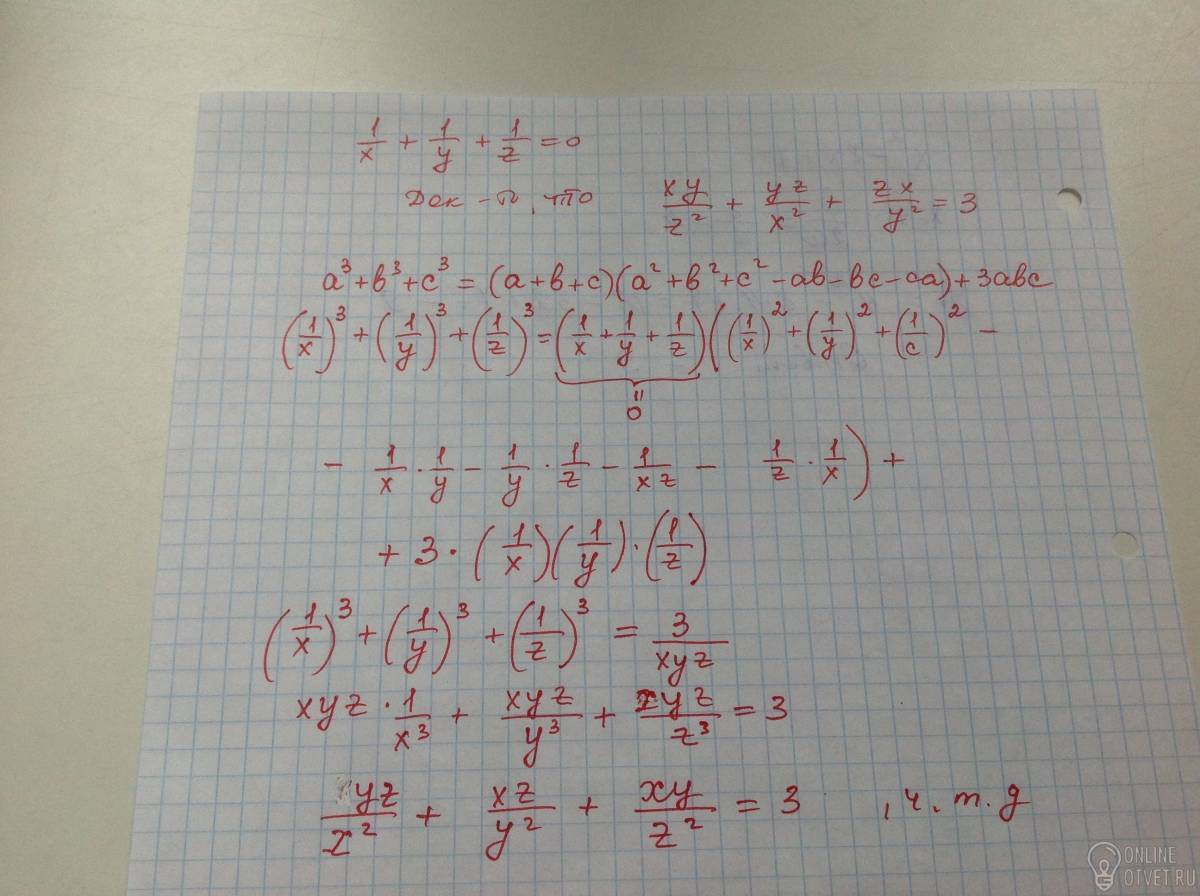 1/x + 1/y + 1/z = 0
Док-ть, что xy/z² + yz/x² + zx/y² = 3
a³+b³+c³ = (a+b+c)(a²+b²+c²-ab-bc-ca)+3abc
(1/x)³ + (1/y)³ + (1/z)³ = (1/x + 1/y + 1/z)((1/x)² + (1/y)² + (1/c)² -
= 0
- 1/x · 1/y - 1/y · 1/z - 1/xz - 1/z · 1/x) +
+ 3 · (1/x)(1/y)·(1/z)
(1/x)³ + (1/y)³ + (1/z)³ = 3/xyz
xyz · 1/x³ + xyz/y³ + xyz/z³ = 3
yz/x² + xz/y² + xy/z² = 3 , ч.т.д
ONLINE
OTVET.RU